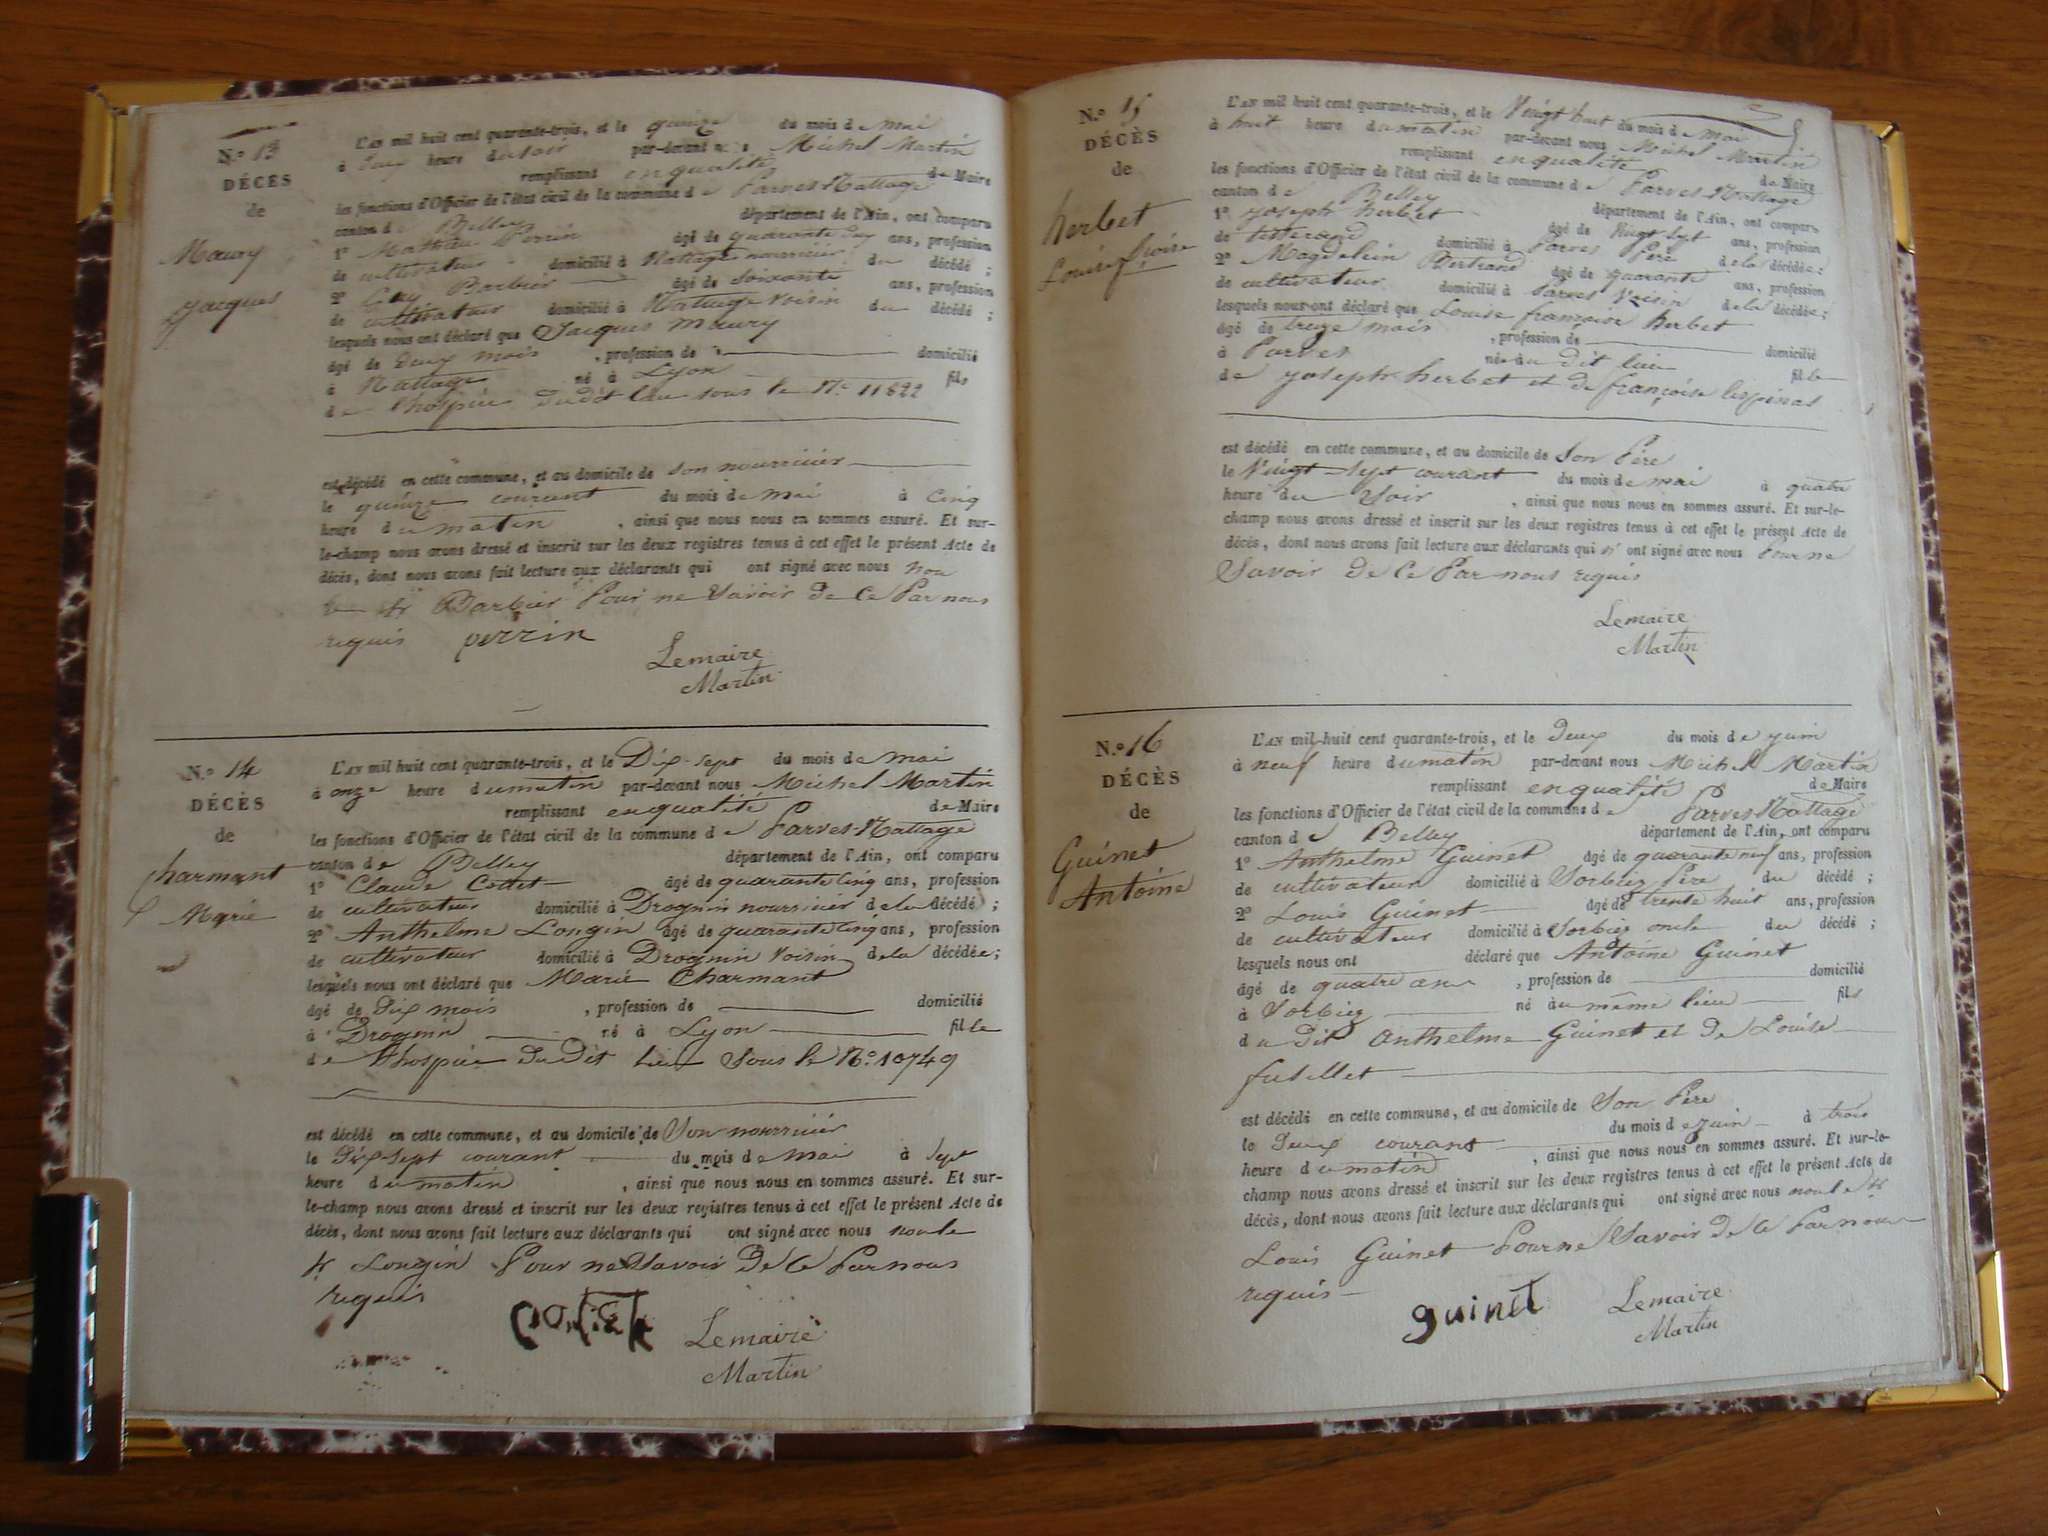 N.º 13
DÉCÈS
de
Maury
Jacques
L'AN mil huit cent quarante-trois, et le quinze du mois de mai
à deux heure du soir par-devant nous Michel Martin
remplissant en qualité de Maire
les fonctions d'Officier de l'état civil de la commune de Parves-Nattage
canton de Belley département de l'Ain, ont comparu
1º Mathieu Perrin âgé de quarante six ans, profession
de cultivateur domicilié à Nattage nourricier du décédé ;
2º Guy Barbier âgé de soixante ans, profession
de cultivateur domicilié à Nattage voisin du décédé ;
lesquels nous ont déclaré que Jacques Maury
âgé de Deux mois , profession de domicilié
à Nattage né à Lyon fils
de l'hospice dudit lieu sous le Nº 11822
est décédé en cette commune, et au domicile de son nourricier
le quinze courant du mois de mai à cinq
heure du matin , ainsi que nous nous en sommes assuré. Et sur-
le-champ nous avons dressé et inscrit sur les deux registres tenus à cet effet le présent Acte de
décès, dont nous avons fait lecture aux déclarants qui ont signé avec nous non
le sr Barbier Pour ne Savoir de Ce Par nous
requis perrin
Lemaire
Martin
N.º 14
DÉCÈS
de
Charmant
Marie
L'AN mil huit cent quarante-trois, et le Dix-Sept du mois de mai
à onze heure du matin par-devant nous Michel Martin
remplissant en qualité de Maire
les fonctions d'Officier de l'état civil de la commune de Parves-Nattage
canton de Belley département de l'Ain, ont comparu
1º Claude Cottet âgé de quarante cinq ans, profession
de cultivateur domicilié à Drognin nourricier de la décédé ;
2º Anthelme Longin âgé de quarante cinq ans, profession
de cultivateur domicilié à Drognin Voisin de la décédée ;
lesquels nous ont déclaré que Marie Charmant
âgé de Dix mois , profession de domicilié
à Drognin né à Lyon fille
de l'hospice du dit lieu Sous le Nº 10749
est décédé en cette commune, et au domicile de Son nourricier
le Dix-Sept courant du mois de mai à Sept
heure du matin , ainsi que nous nous en sommes assuré. Et sur-
le-champ nous avons dressé et inscrit sur les deux registres tenus à cet effet le présent Acte de
décès, dont nous avons fait lecture aux déclarants qui ont signé avec nous non le
sr Longin Pour ne Savoir De Ce Par nous
requis
Lemaire
Martin
N.º 15
DÉCÈS
de
herbet
Louise fçoise
L'AN mil huit cent quarante-trois, et le Vingt huit du mois de mai
à huit heure du matin par-devant nous Michel Martin
remplissant en qualité de Maire
les fonctions d'Officier de l'état civil de la commune de Parves-Nattage
canton de Belley département de l'Ain, ont comparu
1º joseph herbet âgé de Vingt Sept ans, profession
de tisserand domicilié à Parves Père de la décédée ;
2º Magdelein Bertrand âgé de quarante ans, profession
de cultivateur domicilié à Parves Voisin de la décédée ;
lesquels nous ont déclaré que Louise françoise herbet
âgé de treize mois , profession de domicilié
à Parves née au dit lieu fille
de joseph herbet et de françoise lispinas
est décédé en cette commune, et au domicile de Son Père
le Vingt Sept courant du mois de mai à quatre
heure du Soir , ainsi que nous nous en sommes assuré. Et sur-le-
champ nous avons dressé et inscrit sur les deux registres tenus à cet effet le présent Acte de
décès, dont nous avons fait lecture aux déclarants qui n' ont signé avec nous Pour ne
Savoir de Ce Par nous requis
Lemaire
Martin
N.º 16
DÉCÈS
de
Guinet
Antoine
L'AN mil huit cent quarante-trois, et le Deux du mois de juin
à neuf heure du matin par-devant nous Michel Martin
remplissant en qualité de Maire
les fonctions d'Officier de l'état civil de la commune de Parves Nattage
canton de Belley département de l'Ain, ont comparu
1º Anthelme Guinet âgé de quarante neuf ans, profession
de cultivateur domicilié à Sorbiez Père du décédé ;
2º Louis Guinet âgé de trente huit ans, profession
de cultivateur domicilié à Sorbiez oncle du décédé ;
lesquels nous ont déclaré que Antoine Guinet
âgé de quatre ans , profession de domicilié
à Sorbiez né au même lieu fils
du Dit Anthelme Guinet et de Louise
futillet
est décédé en cette commune, et au domicile de Son Père
le Deux courant du mois de juin à trois
heure du matin , ainsi que nous nous en sommes assuré. Et sur-le-
champ nous avons dressé et inscrit sur les deux registres tenus à cet effet le présent Acte de
décès, dont nous avons fait lecture aux déclarants qui ont signé avec nous non le sr
Louis Guinet Pour ne Savoir De Ce Par nous
requis
guinet
Lemaire
Martin